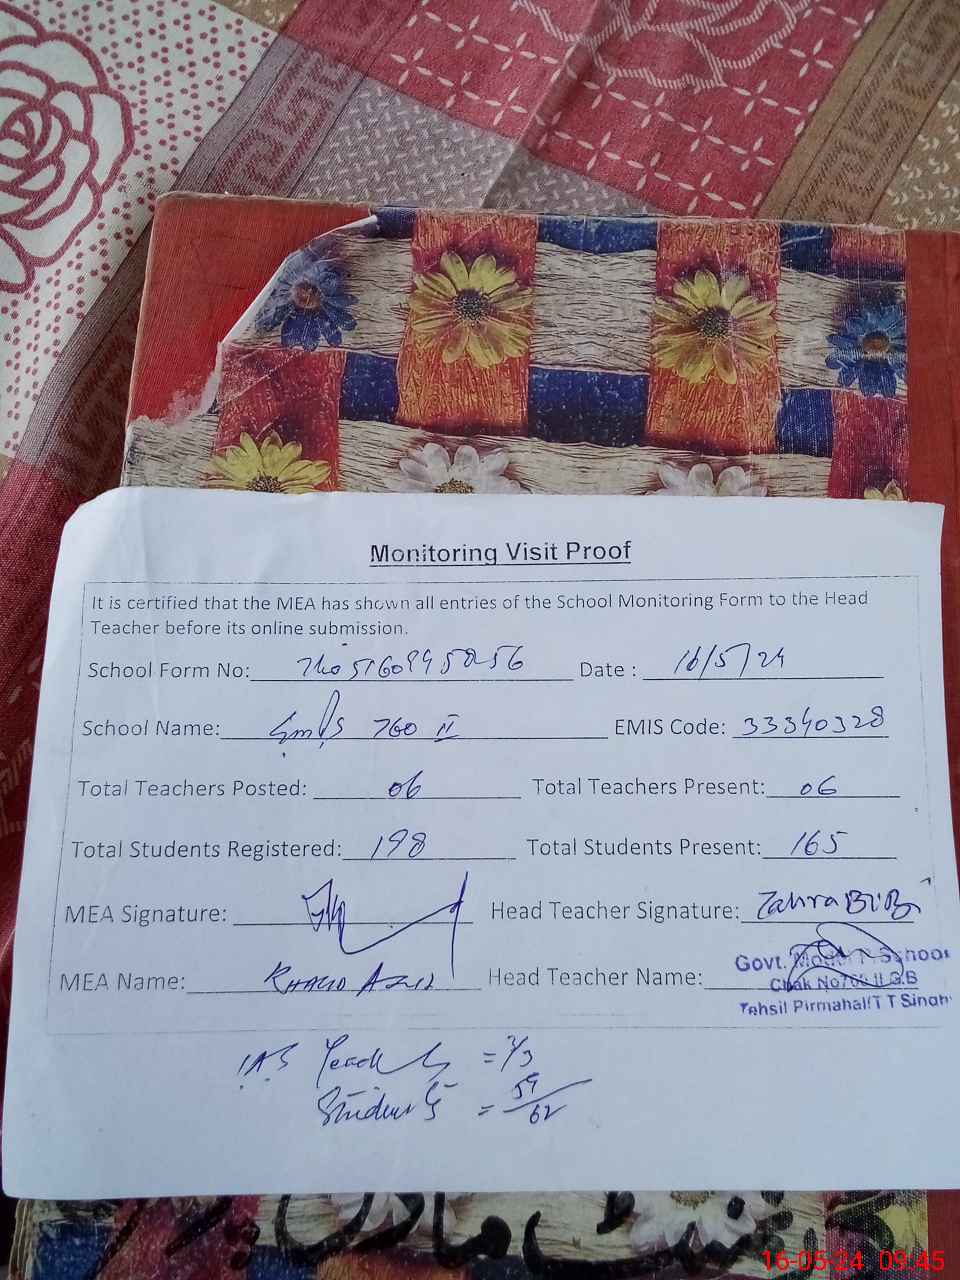 Monitoring Visit Proof
It is certified that the MEA has shown all entries of the School Monitoring Form to the Head
Teacher before its online submission.
School Form No: Date : 16/5/24
School Name: GMPS 760 II EMIS Code: 33340328
Total Teachers Posted: 06 Total Teachers Present: 06
Total Students Registered: 198 Total Students Present: 165
MEA Signature: Head Teacher Signature: Zahra BiBi
MEA Name: KHALID AZIZ Head Teacher Name:
Govt. School
Chak No 760 II G.B
Tehsil Pirmahal T T Singh
= 3/3
Students = 59/62
16-05-24 09:45